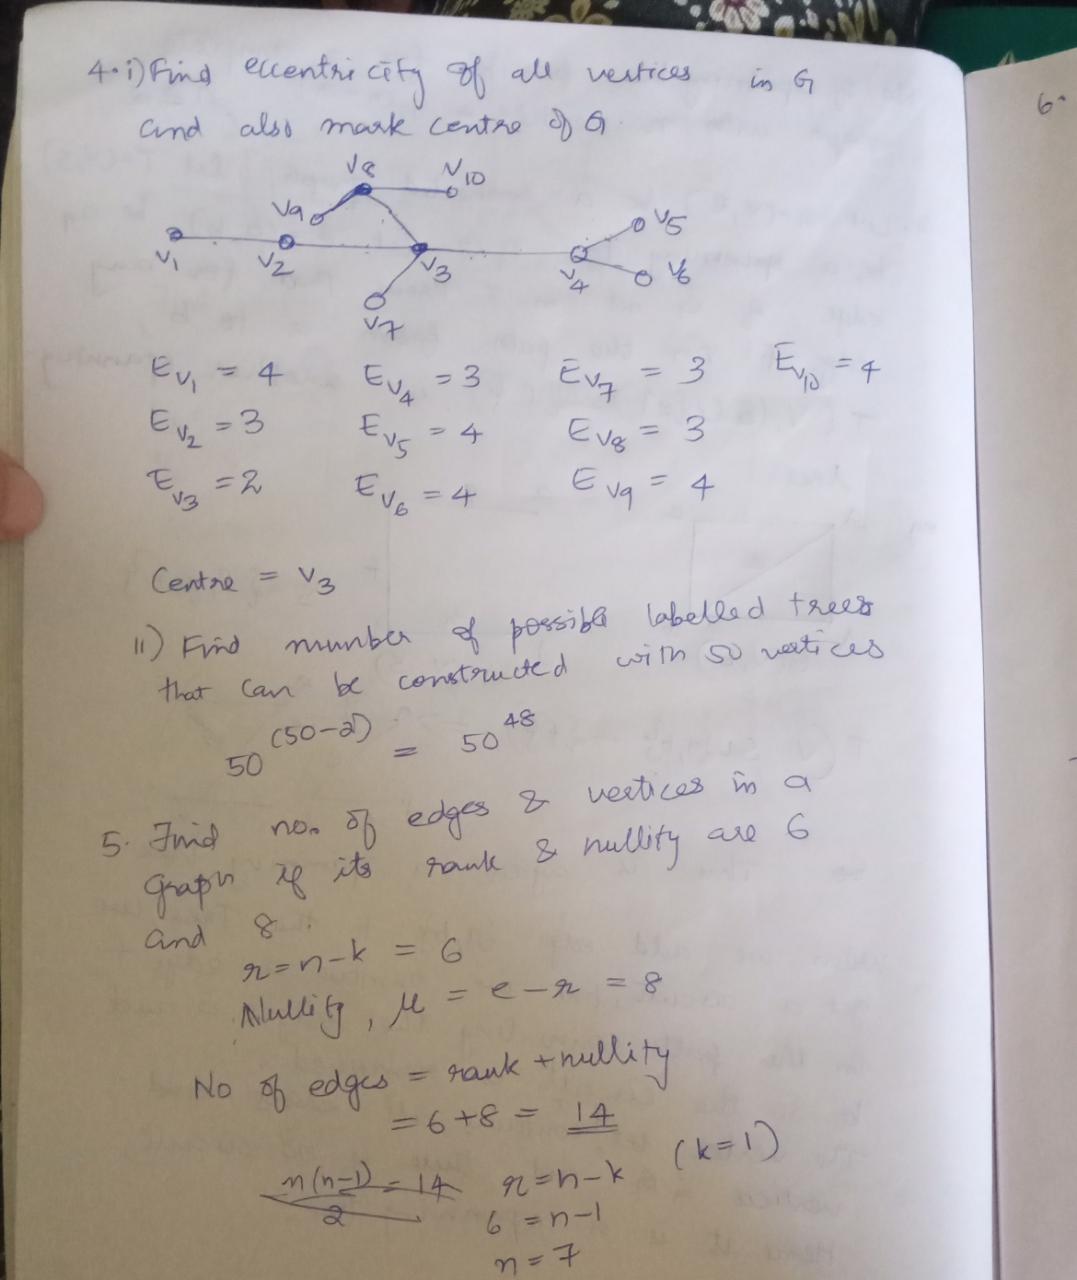 4. i) Find eccentricity of all vertices in G
and also mark centre of G.
V8 V10
V9 V5
V1 V2 V3 V4 V6
V7
E_V1 = 4 E_V4 = 3 E_V7 = 3 E_V10 = 4
E_V2 = 3 E_V5 = 4 E_V8 = 3
E_V3 = 2 E_V6 = 4 E_V9 = 4
Centre = V3
11) Find number of possible labelled trees
that can be constructed with 50 vertices
50^(50-2) = 50^48
5. Find no. of edges & vertices in a
graph if its rank & nullity are 6
and 8.
r = n - k = 6
Nullity, μ = e - r = 8
No of edges = rank + nullity
= 6 + 8 = 14
(k=1)
n(n-1)/2 = 14 r = n - k
6 = n - 1
n = 7
6.